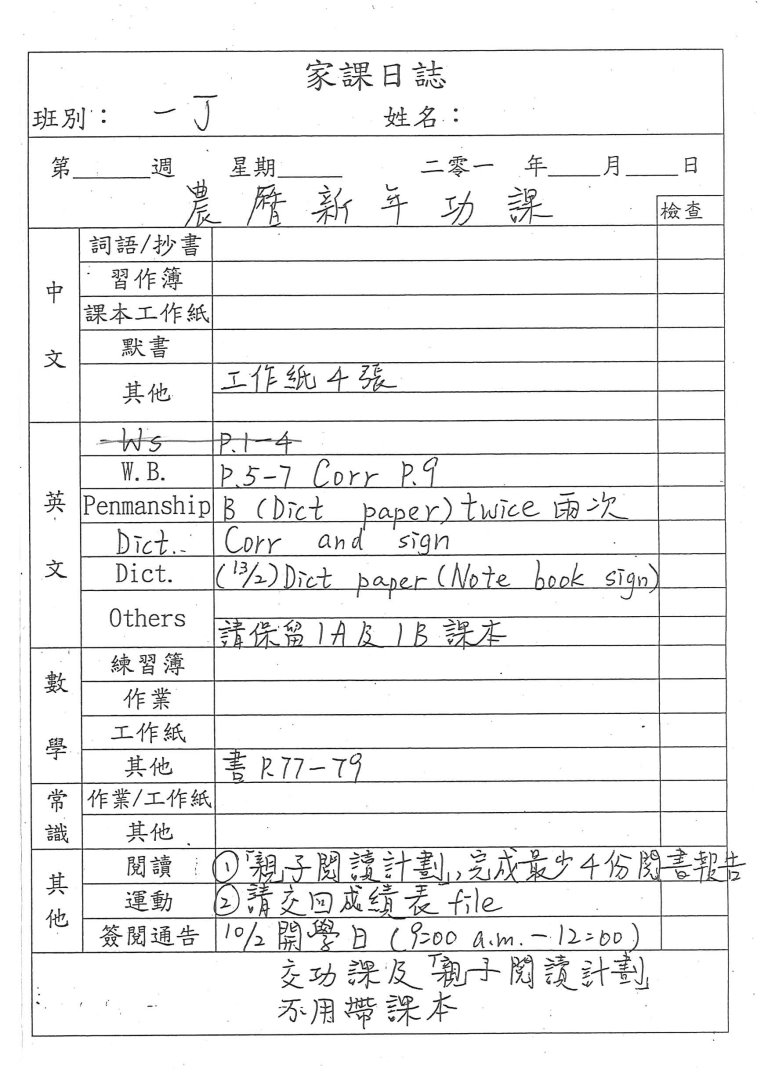 家課日誌
班別： 一J 姓名：
第______週 星期_____ 二零一 年____月____日
農曆新年功課 檢查
中文
詞語/抄書
習作簿
課本工作紙
默書
其他 工作紙4張
英文
Ws P.1-4
W.B. P.5-7 Corr P.9
Penmanship B (Dict paper) twice 兩次
Dict.. Corr and sign
Dict. (13/2) Dict paper (Note book sign)
Others 請保留1A及1B課本
數學
練習簿
作業
工作紙
其他 書P.77-79
常識
作業/工作紙
其他
其他
閱讀 ①「親子閱讀計劃」,完成最少4份閱書報告
運動 ②請交回成績表file
簽閱通告 10/2 開學日 (9:00 a.m. - 12:00)
交功課及「親子閱讀計劃」
不用帶課本